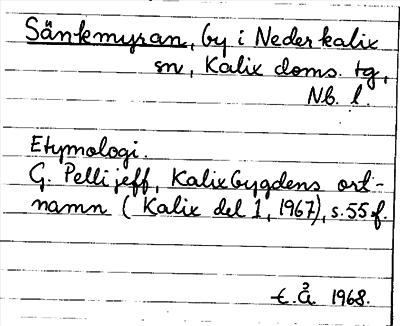 Sänkmyran, by i Nederkalix
sn, Kalix doms. tg,
Nb. l.
Etymologi.
G. Pellijeff, Kalixbygdens ort-
namn (Kalix del 1, 1967), s. 55 f.
t. Å 1968.